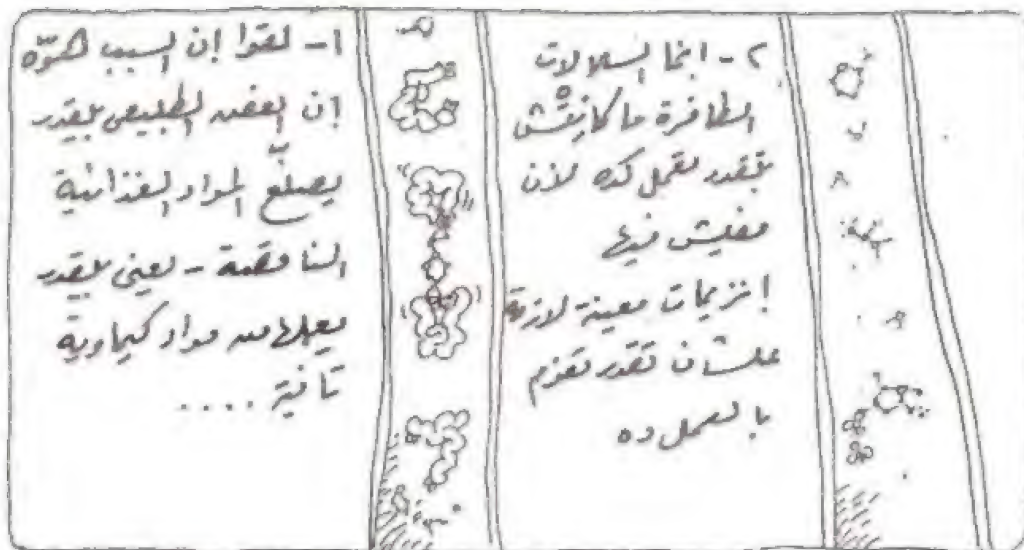 ١- لقوا إن السبب هوّه
إن العفن الطبيعى بيقدر
يصنّع المواد الغذائية
الناقصة - يعنى بيقدر
يعملها من مواد كيماوية
تانية ....
٢- انما السلالات
الطافرة ما كانِتْش
بتقدر تعمل كده لأن
مفيش فيها
إنزيمات معينة لازمة
علشان تقدر تقوم
بالعمل ده